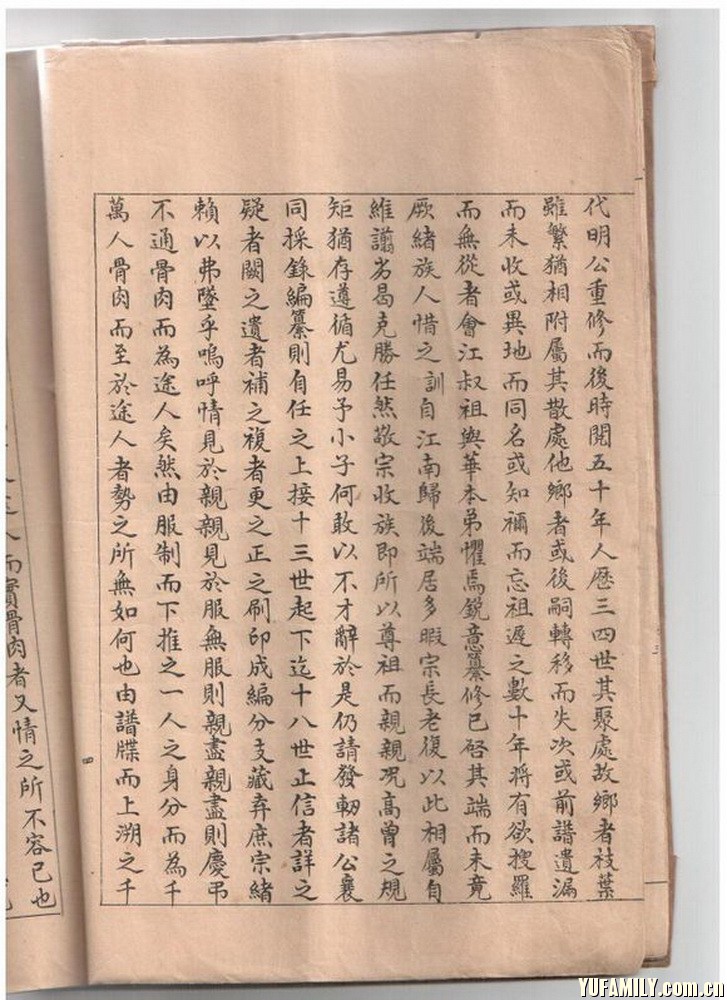 代明公重修而後時閱五十年人歷三四世其聚處故鄉者枝葉
雖繁猶相附屬其散處他鄉者或後嗣轉移而失次或前譜遺漏
而未收或異地而同名或知禰而忘祖遲之數十年將有欲搜羅
而無從者會江叔祖與華本弟懼焉銳意纂修已啓其端而未竟
厥緒族人惜之訓自江南歸後端居多暇宗長老復以此相屬自
維譾劣曷克勝任然敬宗收族即所以尊祖而親親況高曾之規
矩猶存遵循尤易予小子何敢以不才辭於是仍請發軔諸公襄
同採錄編纂則自任之上接十三世起下迄十八世正信者詳之
疑者闕之遺者補之複者更之正之刷印成編分支藏弆庶宗緒
賴以弗墜乎嗚呼情見於親親見於服無服則親盡親盡則慶弔
不通骨肉而為途人矣然由服制而下推之一人之身分而為千
萬人骨肉而至於途人者勢之所無如何也由譜牒而上溯之千
人而實骨肉者又情之所不容已也
8
YUFAMILY.com.cn